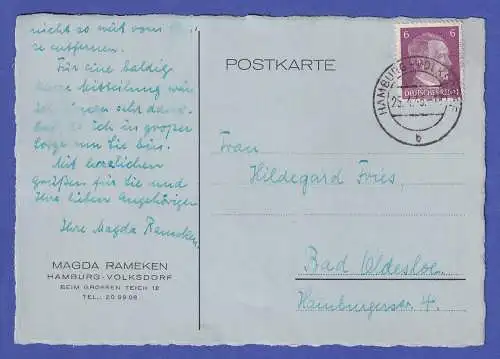 nicht so weit von
zu entfernen.
Für eine baldige
Mitteilung wäre
ich Ihnen sehr dankbar
da ich in großer
Sorge um Sie bin.
Mit herzlichen
Grüßen für Sie und
Ihre lieben Angehörigen
Ihre Magda Rameken
MAGDA RAMEKEN
HAMBURG-VOLKSDORF
BEIM GROSSEN TEICH 12
TEL.: 20 99 06
POSTKARTE
6 6
DEUTSCHES REICH
HAMBURG
b
Frau
Hildegard Fries,
Bad Oldesloe
Hamburgerstr. 4.